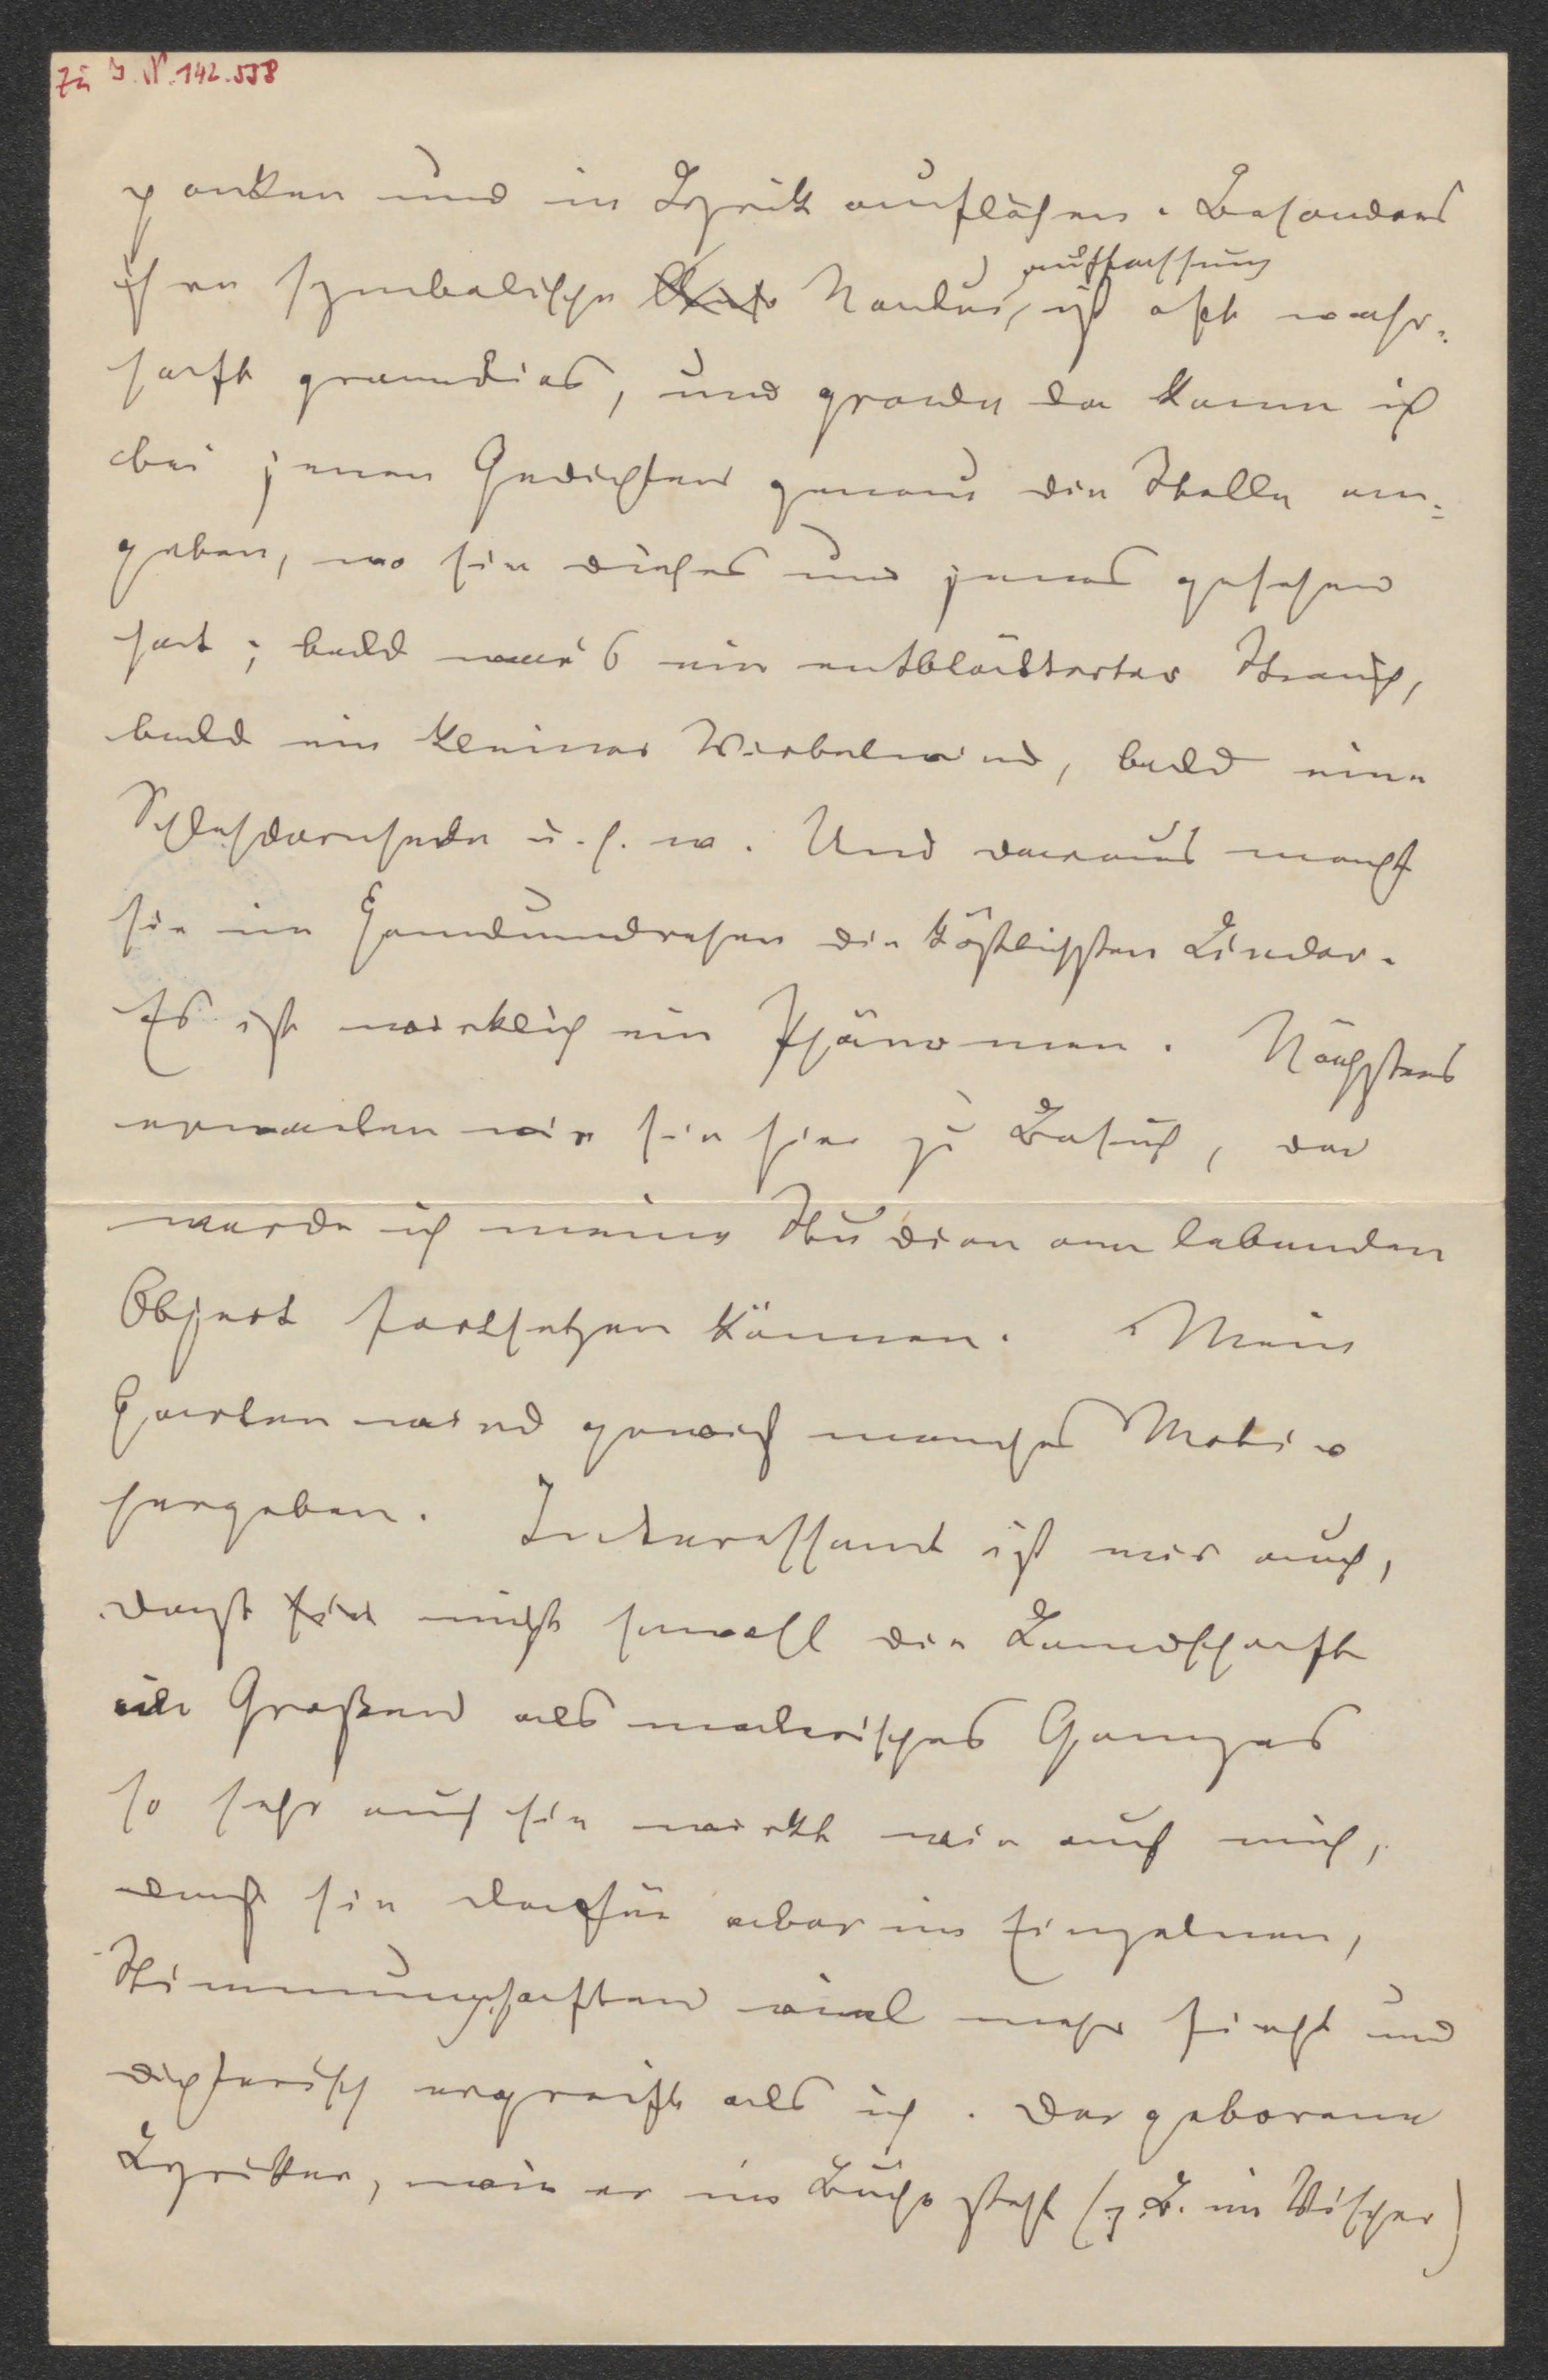 Zu I.N. 142.538
packen und in Lyrik auflösen. Besonders
ihre symbolische Naturauffassung ist oft wahr-
haft grandios, und grade da kann ich
bei jenen Gedichten genau die Stelle an-
geben, wo sie dieses und jenes gesehen
hat; bald war's ein entblätterter Strauch,
bald ein kleiner Wirbelwind, bald eine
Schlehdornhecke u.s.w. Und daraus macht
sie im Handumdrehen die köstlichsten Lieder.
Es ist wirklich ein Phänomen. Nächstens
erwarten wir sie hier zu Besuch, da
werde ich meine Studien am lebenden
Object fortsetzen können. Mein
Garten wird gewiß manches Motiv
hergeben. Interessant ist mir auch,
daß nicht sowohl die Landschaft
im Großen als malerisches Ganzes
so sehr auf sie wirkt wie auf mich,
daß sie dafür aber im Einzelnen,
Stimmungshaften viel mehr sieht und
dichterisch ergreift als ich. Der geborene
Lyriker, wie er im Buche steht (z. B. im Vischer)